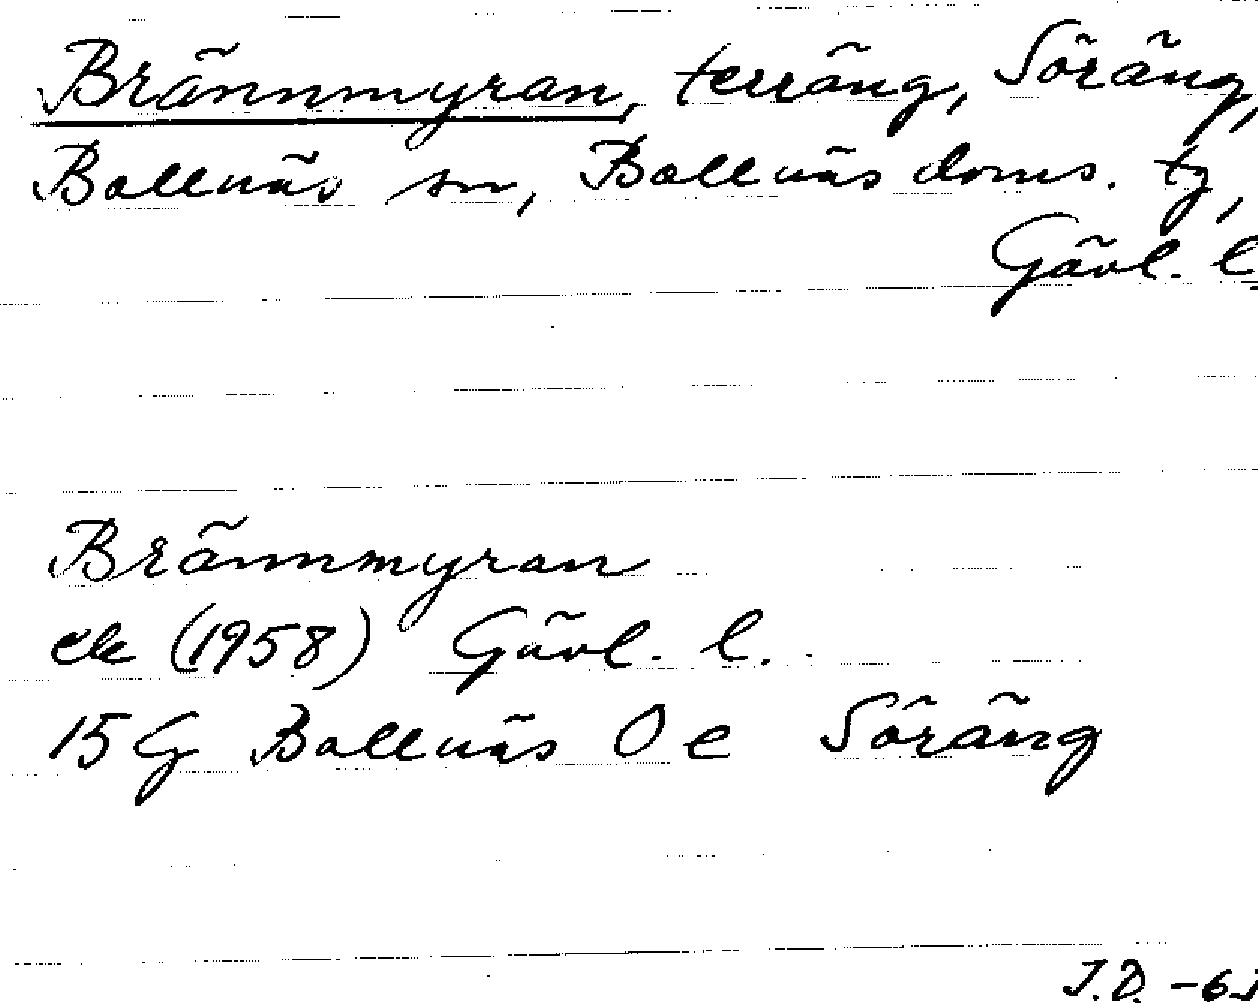 Brännmyran, terräng, Söräng,
Bollnäs sn, Bollnäs doms. tg,
Gävl. l
Brännmyran
ek (1958) Gävl. l.
15 G Bollnäs 0 e Söräng
J.D.